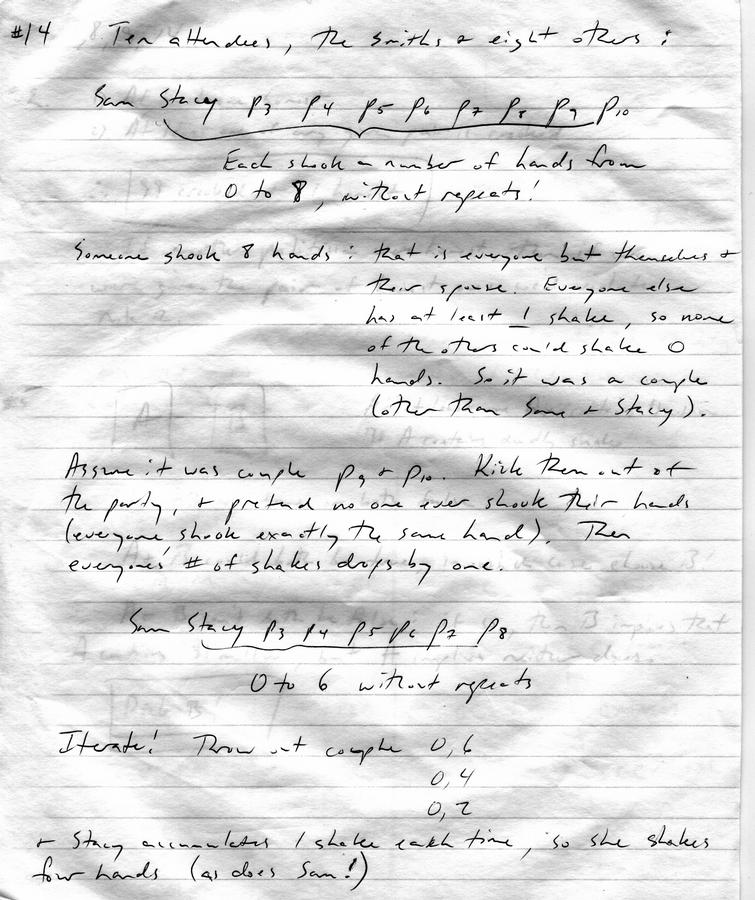 #14 Ten attendees, the Smiths & eight others:
Sam Stacy P3 P4 P5 P6 P7 P8 P9 P10
Each shook a number of hands from
0 to 8, without repeats!
Someone shook 8 hands: that is everyone but themselves &
their spouse. Everyone else
has at least 1 shake, so none
of the others could shake 0
hands. So it was a couple
(other than Sam & Stacy).
Assume it was couple P9 & P10. Kick them out of
the party, & pretend no one ever shook their hands
(everyone shook exactly the same hand). Then
everyones' # of shakes drops by one.
Sam Stacy P3 P4 P5 P6 P7 P8
0 to 6 without repeats
Iterate! Throw out couple 0,6
0,4
0,2
& Stacy accumulates 1 shake each time, so she shakes
four hands (as does Sam!)